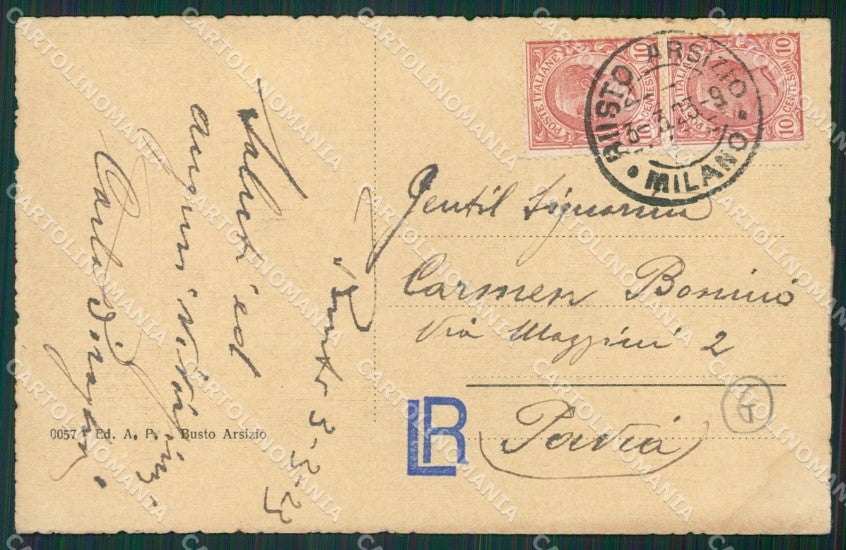 10 10
POSTE ITALIANE
BUSTO ARSIZIO
3.3.23-9
• MILANO •
Gentil Signorina
Carmen Bonino
Via Mazzini 2
Pavia
LR
Busto 3-3-23
Saluti ed
auguri
Carlo
0057 Ed. A. P. - Busto Arsizio
CARTOLINOMANIA